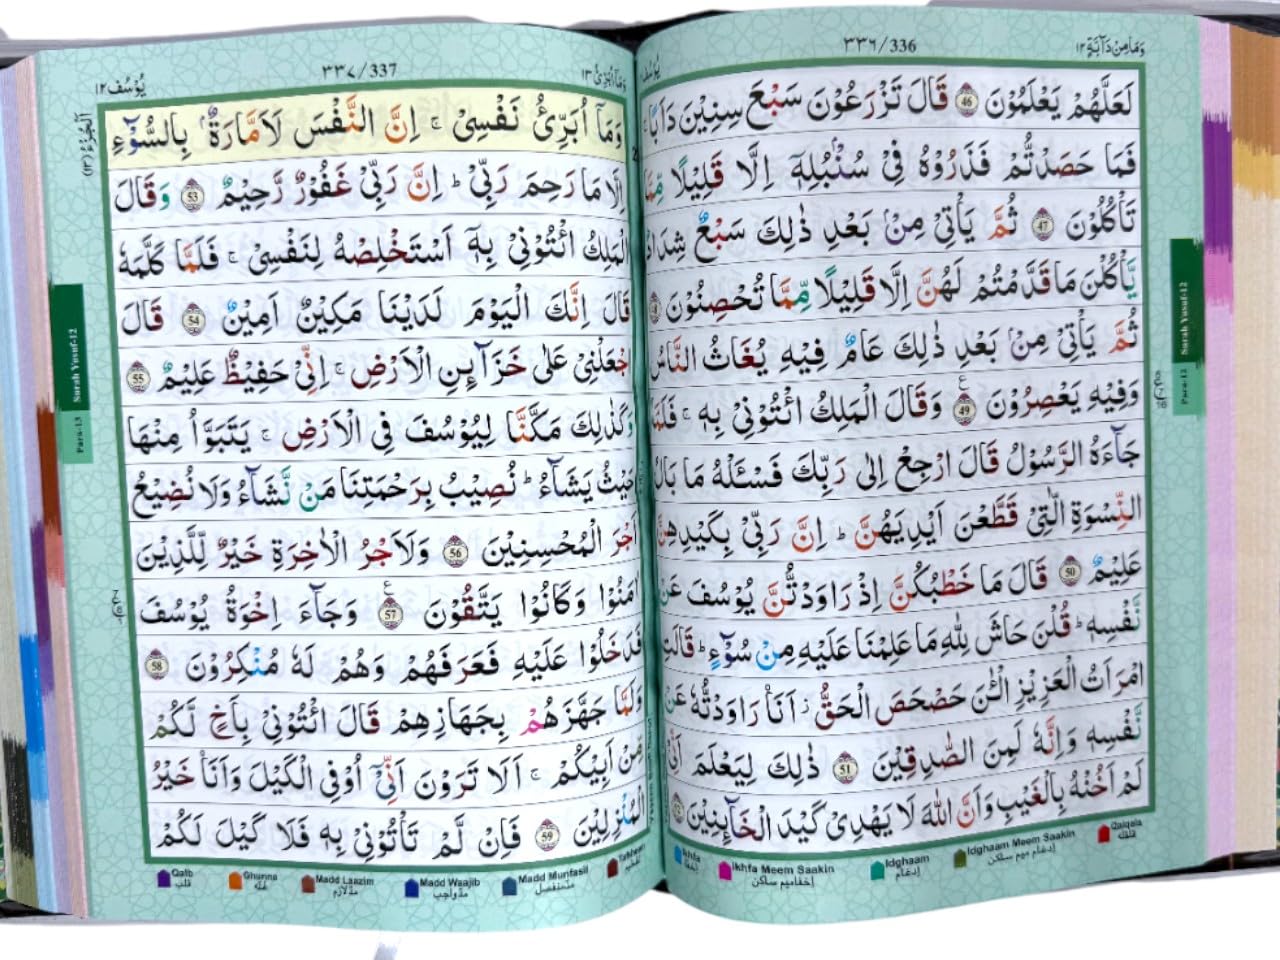 وَمَا مِنْ دَآبَّةٍ ١٢
٣٣٦/336
يُوْسُف
لَعَلَّهُمْ يَعْلَمُوْنَ 46 قَالَ تَزْرَعُوْنَ سَبْعَ سِنِيْنَ دَاَبًا ۚ
فَمَا حَصَدْتُّمْ فَذَرُوْهُ فِيْ سُنْۢبُلِهٖٓ اِلَّا قَلِيْلًا مِّمَّا
تَاْكُلُوْنَ 47 ثُمَّ يَاْتِيْ مِنْۢ بَعْدِ ذٰلِكَ سَبْعٌ شِدَادٌ
يَّاْكُلْنَ مَا قَدَّمْتُمْ لَهُنَّ اِلَّا قَلِيْلًا مِّمَّا تُحْصِنُوْنَ 48
ثُمَّ يَاْتِيْ مِنْۢ بَعْدِ ذٰلِكَ عَامٌ فِيْهِ يُغَاثُ النَّاسُ
وَفِيْهِ يَعْصِرُوْنَ 49 وَقَالَ الْمَلِكُ ائْتُوْنِيْ بِهٖ ۚ فَلَمَّا
جَآءَهُ الرَّسُوْلُ قَالَ ارْجِعْ اِلٰى رَبِّكَ فَسْـَٔلْهُ مَا بَالُ
النِّسْوَةِ الّٰتِيْ قَطَّعْنَ اَيْدِيَهُنَّ ؕ اِنَّ رَبِّيْ بِكَيْدِهِنَّ
عَلِيْمٌ 50 قَالَ مَا خَطْبُكُنَّ اِذْ رَاوَدْتُّنَّ يُوْسُفَ عَنْ
نَّفْسِهٖ ؕ قُلْنَ حَاشَ لِلّٰهِ مَا عَلِمْنَا عَلَيْهِ مِنْ سُوْٓءٍ ؕ قَالَتِ
امْرَاَتُ الْعَزِيْزِ الْـٰٔنَ حَصْحَصَ الْحَقُّ ؗ اَنَا رَاوَدْتُّهٗ عَنْ
نَّفْسِهٖ وَاِنَّهٗ لَمِنَ الصّٰدِقِيْنَ 51 ذٰلِكَ لِيَعْلَمَ اَنِّيْ
لَمْ اَخُنْهُ بِالْغَيْبِ وَاَنَّ اللّٰهَ لَا يَهْدِيْ كَيْدَ الْخَآئِنِيْنَ 52
Surah Yusuf-12
Para-12
Ikhfa
إخفا
Ikhfa Meem Saakin
إخفا ميم ساكن
Idghaam
إدغام
Idghaam Meem Saakin
إدغام ميم ساكن
Qalqala
قلقله
وَمَآ اُبَرِّئُ ١٣
٣٣٧/337
يُوْسُف ١٢
اَلْجُزْءُ (١٣)
وَمَآ اُبَرِّئُ نَفْسِيْ ۚ اِنَّ النَّفْسَ لَاَمَّارَةٌۢ بِالسُّوْٓءِ
اِلَّا مَا رَحِمَ رَبِّيْ ؕ اِنَّ رَبِّيْ غَفُوْرٌ رَّحِيْمٌ 53 وَقَالَ
الْمَلِكُ ائْتُوْنِيْ بِهٖٓ اَسْتَخْلِصْهُ لِنَفْسِيْ ۚ فَلَمَّا كَلَّمَهٗ
قَالَ اِنَّكَ الْيَوْمَ لَدَيْنَا مَكِيْنٌ اَمِيْنٌ 54 قَالَ
اجْعَلْنِيْ عَلٰى خَزَآئِنِ الْاَرْضِ ۚ اِنِّيْ حَفِيْظٌ عَلِيْمٌ 55
وَكَذٰلِكَ مَكَّنَّا لِيُوْسُفَ فِي الْاَرْضِ ۚ يَتَبَوَّاُ مِنْهَا
حَيْثُ يَشَآءُ ؕ نُصِيْبُ بِرَحْمَتِنَا مَنْ نَّشَآءُ وَلَا نُضِيْعُ
اَجْرَ الْمُحْسِنِيْنَ 56 وَلَاَجْرُ الْاٰخِرَةِ خَيْرٌ لِّلَّذِيْنَ
اٰمَنُوْا وَكَانُوْا يَتَّقُوْنَ 57 وَجَآءَ اِخْوَةُ يُوْسُفَ
فَدَخَلُوْا عَلَيْهِ فَعَرَفَهُمْ وَهُمْ لَهٗ مُنْكِرُوْنَ 58
وَلَمَّا جَهَّزَهُمْ بِجَهَازِهِمْ قَالَ ائْتُوْنِيْ بِاَخٍ لَّكُمْ
مِّنْ اَبِيْكُمْ ۚ اَلَا تَرَوْنَ اَنِّيْٓ اُوْفِي الْكَيْلَ وَاَنَا خَيْرُ
الْمُنْزِلِيْنَ 59 فَاِنْ لَّمْ تَاْتُوْنِيْ بِهٖ فَلَا كَيْلَ لَكُمْ
Surah Yusuf-12
Para-13
Qalb
قلب
Ghunna
غنّه
Madd Laazim
مدّ لازم
Madd Waajib
مدّ واجب
Madd Munfasil
مدّ منفصل
Tafkheem
تفخيم